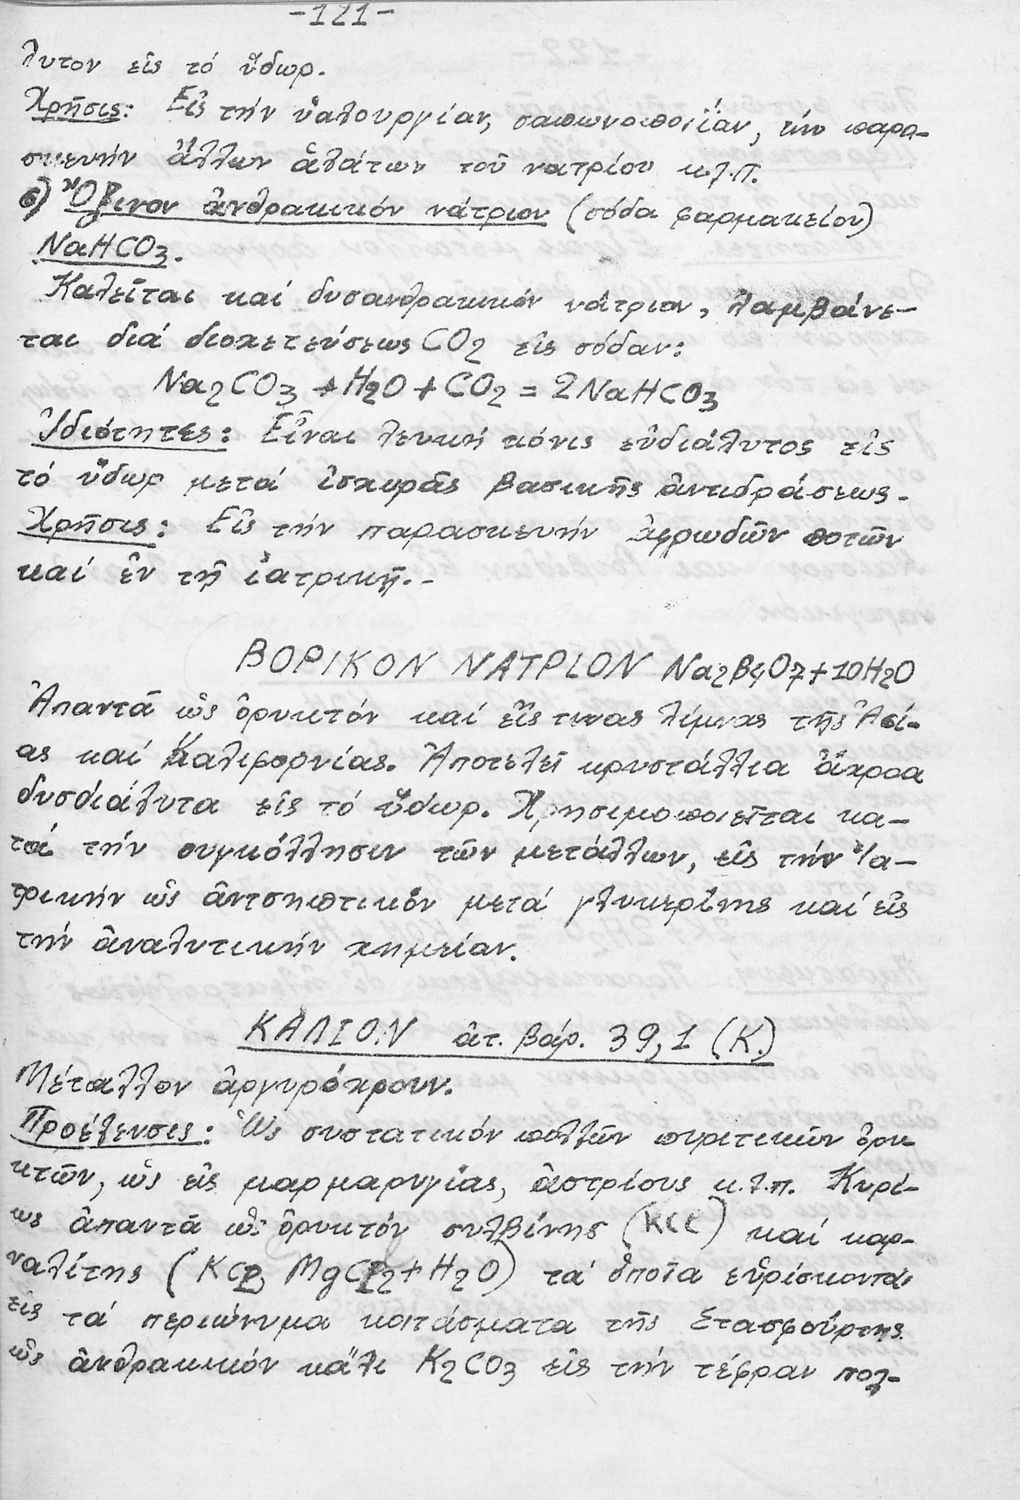 -121-
λυτον εἰς τό ὕδωρ.
Χρῆσις: Εἰς τήν ὑαλουργίαν, σαπωνοποιΐαν, τήν παρα-
σκευήν ἄλλων ἁλάτων τοῦ νατρίου κ.λ.π.
ϐ) Ὄξινον ἀνθρακικόν νάτριον (σόδα φαρμακείου)
NaHCO3.
Καλεῖται καί δυσανθρακικόν νάτριον, λαμβάνε-
ται διά διοχετεύσεως CO2 εἰς σόδαν:
Na2CO3 + H2O + CO2 = 2NaHCO3
Ἰδιότητες: Εἶναι λευκή κόνις εὐδιάλυτος εἰς
τό ὕδωρ μετά ἰσχυρᾶς βασικῆς ἀντιδράσεως.
Χρῆσις: Εἰς τήν παρασκευήν ἀφρωδῶν ποτῶν
καί ἐν τῇ ἰατρικῇ.-
ΒΟΡΙΚΟΝ ΝΑΤΡΙΟΝ Na2B4O7+10H2O
Ἀπαντᾶ ὡς ὀρυκτόν καί εἴς τινας λίμνας τῆς Ἀσί-
ας καί Καλιφορνίας. Ἀποτελεῖ κρυστάλλια ἄχροα
δυσδιάλυτα εἰς τό ὕδωρ. Χρησιμοποιεῖται κα-
τά τήν συγκόλλησιν τῶν μετάλλων, εἰς τήν ἰα-
τρικήν ὡς ἀντσηπτικόν μετά γλυκερίνης καί εἰς
τήν ἀναλυτικήν χημείαν.
ΚΑΛΙΟΝ ἀτ. βάρ. 39,1 (Κ.)
Μέταλλον ἀργυρόχρουν.
Προέλευσις: Ὡς συστατικόν πολλῶν πυριτικῶν ὀρυ-
κτῶν, ὡς εἰς μαρμαρυγίας, ἀστρίους κ.λ.π. Κυρί-
ως ἀπαντᾶ ὡς ὀρυκτόν συλβίνης (KCl) καί καρ-
ναλίτης (KCl, MgCl2+H2O) τά ὁποῖα εὑρίσκονται
εἰς τά περιώνυμα κοιτάσματα τῆς Στασφούρτης
ὡς ἀνθρακικόν κάλι K2CO3 εἰς τήν τέφραν πολ-